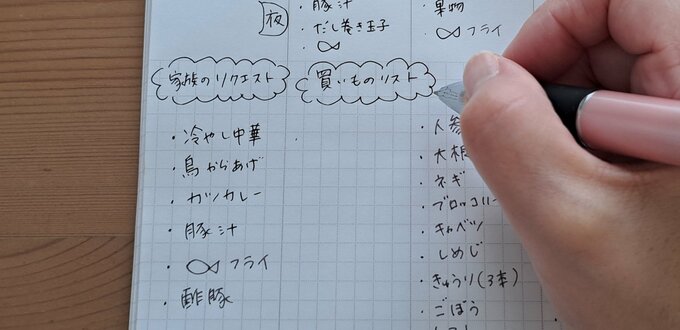 夜
・豚汁
・だし巻き玉子
・果物
・フライ
家族のリクエスト
・冷やし中華
・鳥からあげ
・カツカレー
・豚汁
・フライ
・酢豚
買いものリスト
・人参
・大根
・ネギ
・ブロッコリー
・キャベツ
・しめじ
・きゅうり(3本)
・ごぼう